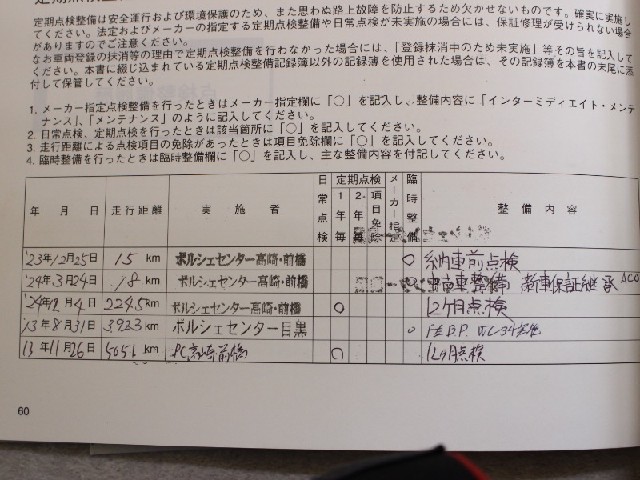 定期点検整備は安全運行および環境保護のため、また思わぬ路上故障を防止するため欠かせないものです。確実に実施し
てください。法定およびメーカーの指定する定期点検整備や日常点検が未実施の場合には、保証修理が受けられない場合
がありますのでご注意ください。
なお車両登録の抹消等の理由で定期点検整備を行わなかった場合には、「登録抹消中のため未実施」等その旨を記入して
ください。本書に綴じ込まれている定期点検整備記録簿以外の記録簿を使用された場合は、その記録簿を本書の末尾に添
付して保管してください。
1. メーカー指定点検整備を行ったときはメーカー指定欄に「○」を記入し、整備内容に「インターミディエイト・メンテ
ナンス」、「メンテナンス」のように記入してください。
2. 日常点検、定期点検を行ったときは該当箇所に「○」を記入してください。
3. 走行距離による点検項目の免除があったときは項目免除欄に「○」を記入してください。
4. 臨時整備を行ったときは臨時整備欄に「○」を記入し、主な整備内容を付記してください。
年 月 日 走行距離 実施者 日常点検 定期点検 1年毎 2年毎 項目免除 メーカー指定 臨時整備 整備内容
'23年12月25日 15 km ポルシェセンター高崎・前橋 ○ 納車前点検
'24年3月24日 18 km ポルシェセンター高崎・前橋 中古車整備 新車保証継承
'24年 月4日 2245km ポルシェセンター高崎・前橋 ○ 12ヶ月点検
13年8月31日 3923 km ポルシェセンター目黒 ○
13年11月26日 5651 km PC高崎前橋 ○ 12ヶ月点検
60